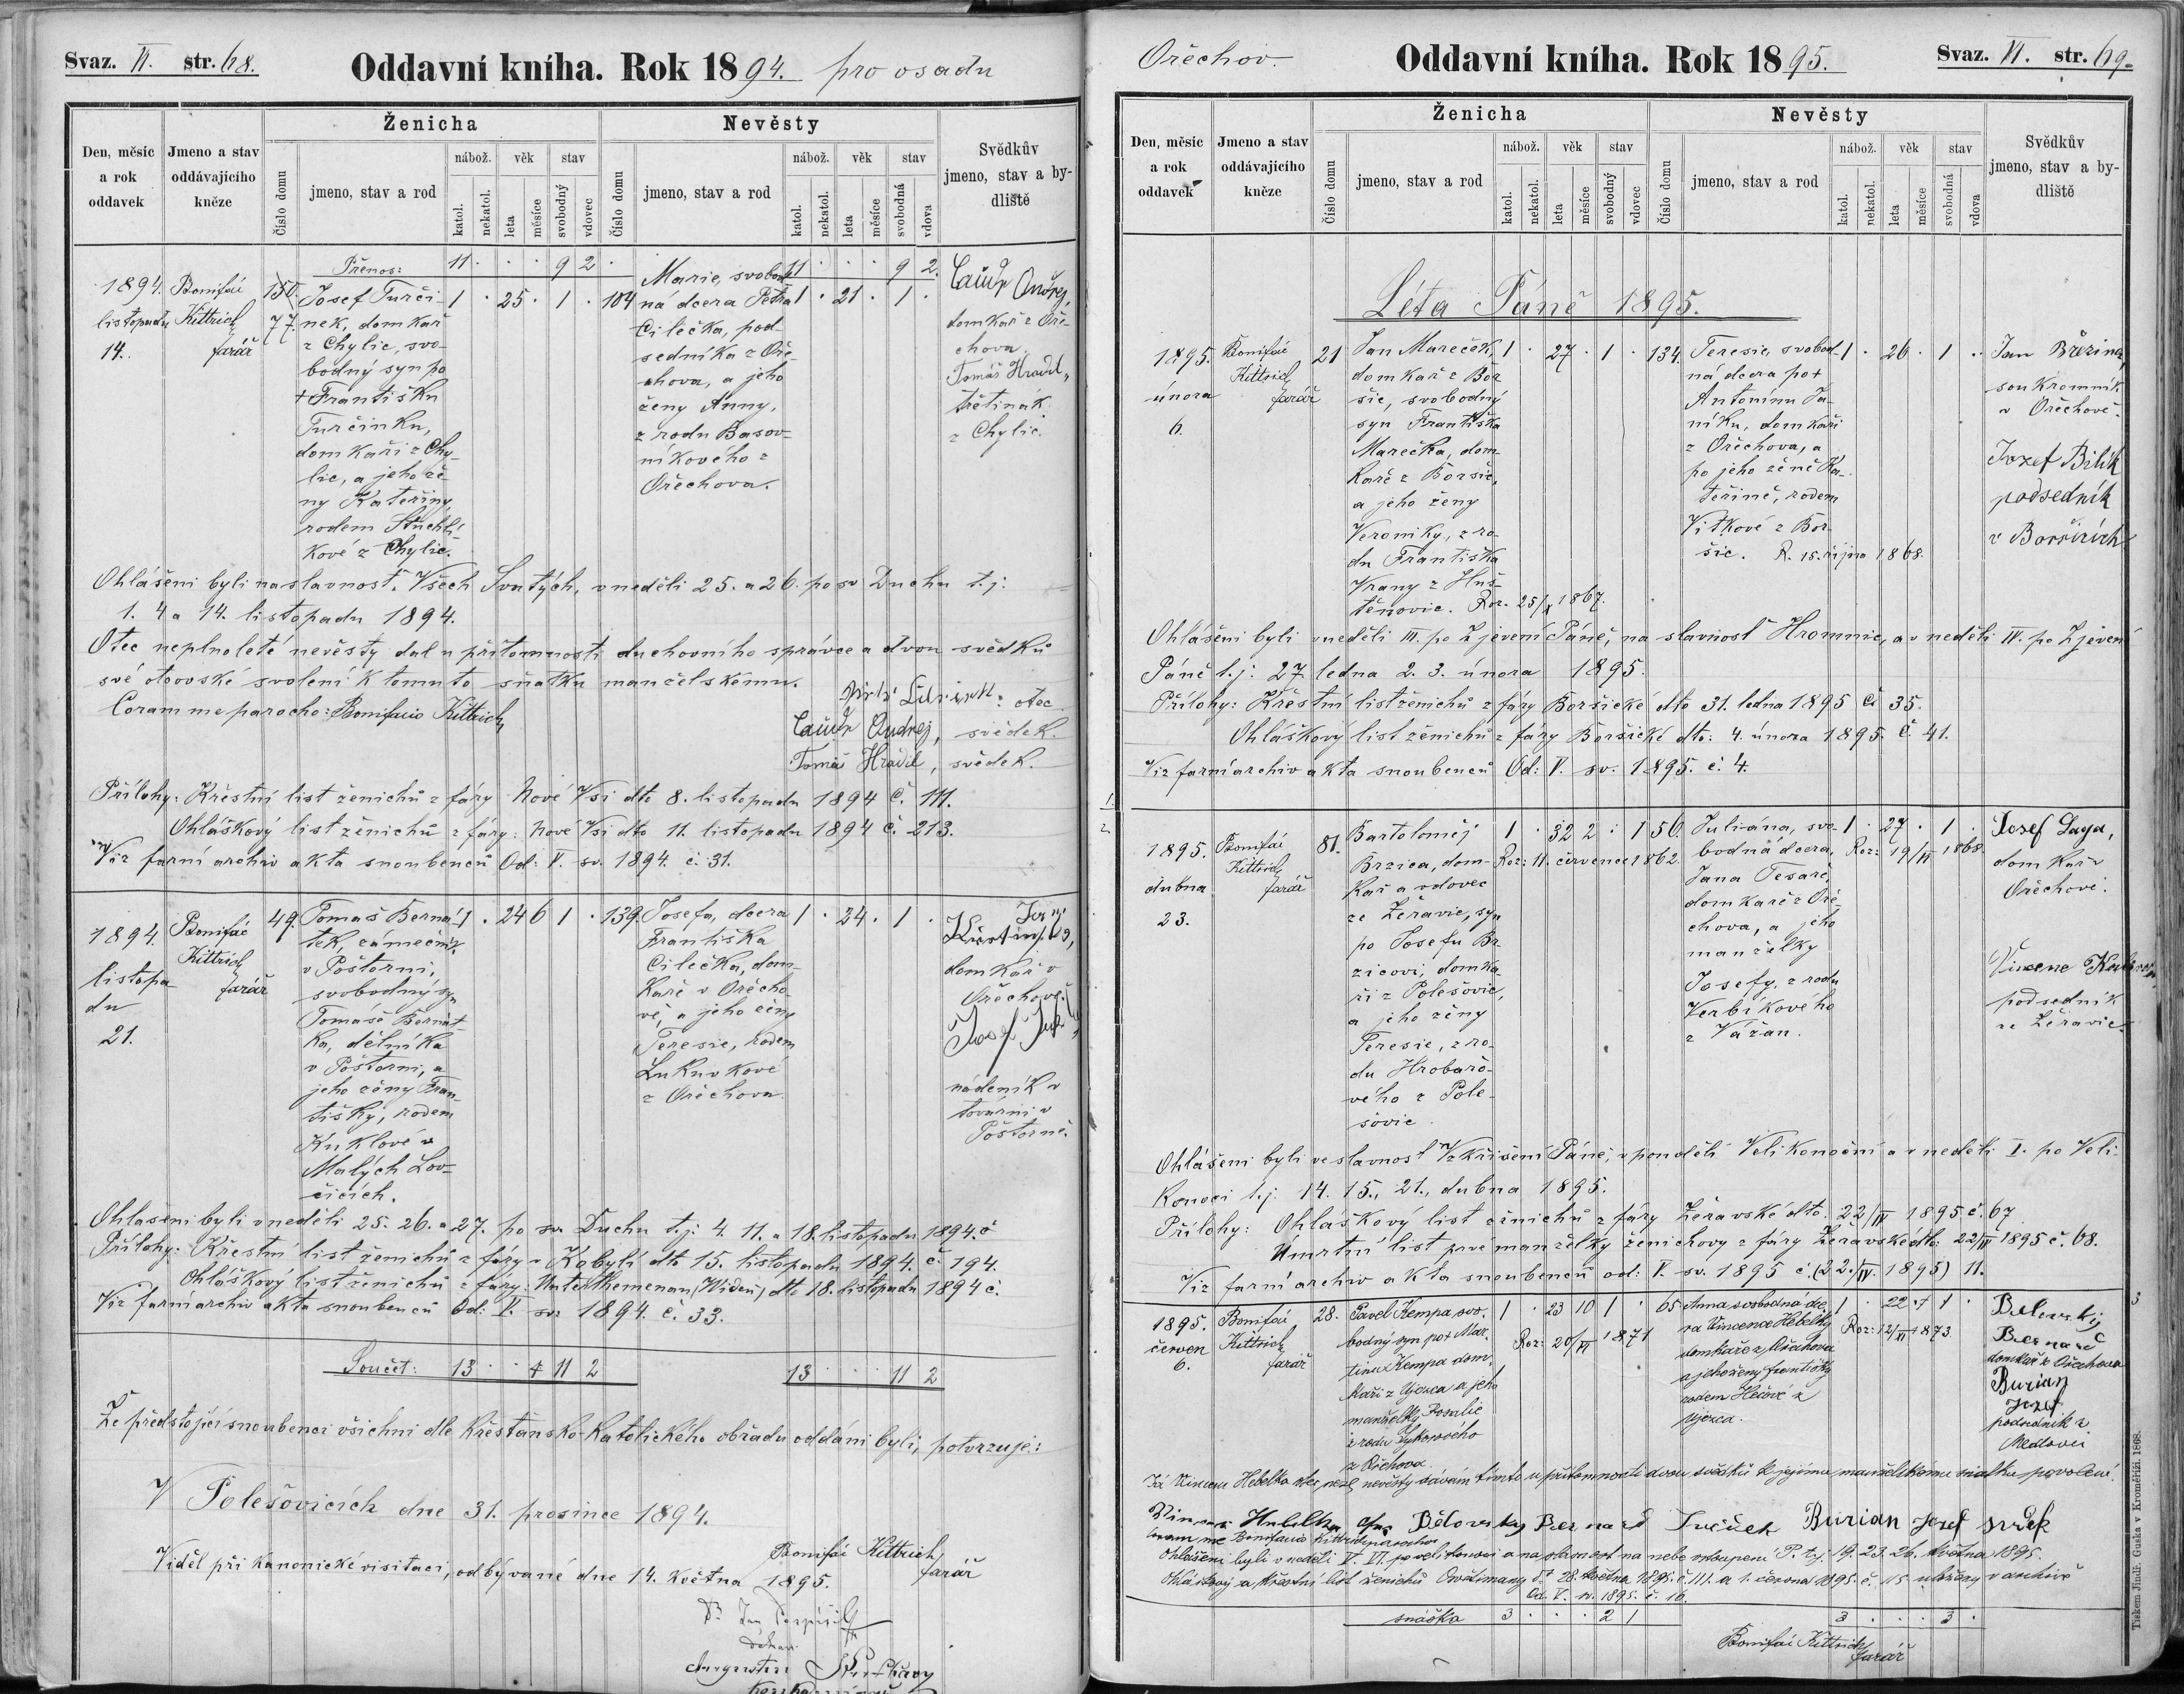 Svaz. VI. str. 68.
Oddavní kniha. Rok 1894. pro osadu
Den, měsíc a rok oddavek
Jmeno a stav oddávajícího kněze
Ženicha
Číslo domu
jmeno, stav a rod
nábož. věk stav
katol. nekatol. leta měsíce svobodný vdovec
Nevěsty
Číslo domu
jmeno, stav a rod
nábož. věk stav
katol. nekatol. leta měsíce svobodná vdova
Svědkův jmeno, stav a bydliště
Přenos: 11 · · · 9 2 · 11 · · · 9 2.
1894.
listopadu
14.
Bonifác
Kittrich
farář
150.
77.
Josef Turči-
nek, domkař
z Chylic, svo-
bodný syn po
+ Františku
Turčinku,
domkaři z Chy-
lic, a jeho že-
ny Kateřiny,
rodem Stuchlí-
kové z Chylic.
1 · 25 · 1 · 104
Marie, svobod-
ná dcera Petra
Cilečka, pod-
sedníka z Oře-
chova, a jeho
ženy Anny,
z rodu Basov-
níkového z
Ořechova.
1 · 21 · 1 ·
domkař z Oře-
chova.
Tomáš Hradil,
třetinák
z Chylic.
Ohlášeni byli na slavnosť Všech Svatých, v neděli 25. a 26. po sv Duchu t. j:
1. 4 a 14. listopadu 1894.
Otec neplnoleté nevěsty dal u přítomnosti duchovního správce a dvou svědků
své otcovské svolení k tomuto sňatku manželskému.
otec
Coram me parocho: Bonifacio Kittrich
Andrej, svědek.
Tomáš Hradil, svědek.
Přílohy: Křestní list ženichů z fáry Nové Vsi dto 8. listopadu 1894 č. 111.
Ohláškový list ženichů z fáry: Nové Vsi dto 11. listopadu 1894 č. 213.
Viz farní archiv akta snoubenců Od: V. sv. 1894. č. 31.
1894.
listopa
du
21.
Bonifác
Kittrich
farář
49.
Tomaš Berná-
tek, zámečník
v Poštorni,
svobodný syn
Tomaše Bernát-
ka, dělníka
v Poštorni, a
jeho ženy Fran-
tišky, rodem
Kuklové v
Malých Lov-
čicích.
1 · 24 6 1 · 139.
Josefa, dcera
Františka
Cilečka, dom-
kaře v Ořecho-
vě, a jeho ženy
Teresie, rodem
Lukuvkové
z Ořechova.
1 · 24 · 1 ·
domkář v
Ořechově.
Josef
nádeník v
továrni v
Poštorně.
Ohlašeni byli v neděli 25. 26. a 27. po sv. Duchu t. j: 4. 11. a 18. listopadu 1894. č
Přílohy: Křestní list ženichů z fáry v Kobylí dto 15. listopadu 1894. č. 194.
Ohláškový list ženichů z fáry: Unterthemenau (Vídeň) dto 18. listopadu 1894 č.
Viz farní archiv akta snoubenců Od: V. sv: 1894. č. 33.
Součet: 13 · · · 11 2 13 · · · 11 2
Že předstojící snoubenci všichni dle křesťansko-katolického obřadu oddáni byli, potvrzuje:
V Polešovicích dne 31. prosince 1894.
Bonifác Kittrich
farář
Viděl při kanonické visitaci, odbývané dne 14. května 1895.
Dr. Jan
děkan
Augustin
Ořechov.
Oddavní kniha. Rok 1895.
Svaz. VI. str. 69.
Den, měsíc a rok oddavek
Jmeno a stav oddávajícího kněze
Ženicha
Číslo domu
jmeno, stav a rod
nábož. věk stav
katol. nekatol. leta měsíce svobodný vdovec
Nevěsty
Číslo domu
jmeno, stav a rod
nábož. věk stav
katol. nekatol. leta měsíce svobodná vdova
Svědkův jmeno, stav a bydliště
Léta Páně 1895.
1895.
února
6.
Bonifác
Kittrich
farář
21
Jan Mareček,
domkař z Bor
šic, svobodný
syn Františka
Marečka, dom-
kaře z Boršic,
a jeho ženy
Veroniky, z ro-
du Františka
Vrany z Huš-
těnovic. Roz. 25/X 1867.
1 · 27 · 1 · 134.
Teresie, svobod-
ná dcera po +
Antonínu Ja-
níku, domkaři
z Ořechova, a
po jeho ženě Ka-
teřině, rodem
Vitkové z Bor-
šic. R. 15. října 1868.
1 · 26 · 1 ·
Jan Březina,
soukromník
v Ořechově.
Jozef Bilík
podsedník
v Boršicích
Ohlášeni byli v neděli III. po Zjevení Páně, na slavnosť Hromnic, a v neděli IV. po Zjevení
Páně t. j: 27 ledna 2. 3. února 1895.
Přílohy: Křestní list ženichů z fáry Boršické dto 31. ledna 1895 č. 35.
Ohláškový list ženichů z fáry Boršické dto: 4. února 1895. č. 41.
Viz farní archiv akta snoubenců Od: V. sv. 1895. č. 4.
1.
2
1895.
dubna
23.
Bonifác
Kittrich
farář
81.
Bartoloměj
Brzica, dom-
kař a vdovec
ze Žeravic, syn
po Josefu Br-
zicovi, domka-
ři z Polešovic,
a jeho ženy
Teresie, z ro-
du Hrobařo-
vého z Pole-
šovic.
1 · 32 2 · 1 56.
Roz: 11. července 1862.
Juliána, svo-
bodná dcera,
Jana Tesaře,
domkaře z Oře-
chova, a jeho
manželky
Josefy, z rodu
Verbíkového
z Vážan.
1 · 27 · 1 ·
Roz: 19/II 1868.
Josef Daga,
domkař v
Ořechově.
Vincenc
podsedník
ze Žeravic
Ohlášeni byli ve slavnosť Vzkříšení Páně, v pondělí Velikonoční a v neděli I. po Veli-
konoci t. j. 14. 15., 21., dubna 1895.
Přílohy: Ohláškový list ženichů z fáry Žeravské dto. 22/IV 1895 č. 67
Úmrtní list prvé manželky ženichovy z fáry Žeravské dto: 22/IV 1895 č. 68.
Viz farní archiv akta snoubenců od: V. sv. 1895 č. (22./IV. 1895) 11.
3
1895.
červen
6.
Bonifác
Kittrich
farář
28.
Pavel Kempa svo-
bodný syn po + Mar-
tinu Kempa dom-
kaři z Újezca a jeho
manželky Rosalie
z rodu
z Ořechova.
1 · 23 10 1 · 65
Roz: 20/VI 1871
Anna svobodná dce-
ra Vincence Hebelky
domkaře z Ořechova
a jeho ženy Františky
rodem
Újezca.
1 · 22 · 1 ·
Roz: 12/XI 1873.
Bělovsky
Bernard
domkař z Ořechova
Burian
Jozef
podsedník z
Medlovic
Já Vincenc Hebelka otec nezl. nevěsty dávám tímto u přítomnosti dvou svědků k jejímu manželskému sňatku povolení.
Vincenc Hebelka otec Bělovsky Bernard Svědek Burian Jozef svědek
Coram me Bonifacio Kittrich parocho
Ohlášeni byli v neděli V. VI. po velikonoci a na slavnost na nebe vstoupení P. t. j. 19. 23. 26. května 1895.
Ohláškový a křestní list ženichů Osvětimany dto 28. května 1895. č. 111. a 1. června 1895. č. 115 uloženy v archivě
Od. V. sv. 1895. č. 16.
snáška 3 · · · 2 1 3 · · · 3 ·
Bonifác Kittrich
farář
Tiskem Jindř. Guska v Kroměříži. 1868.